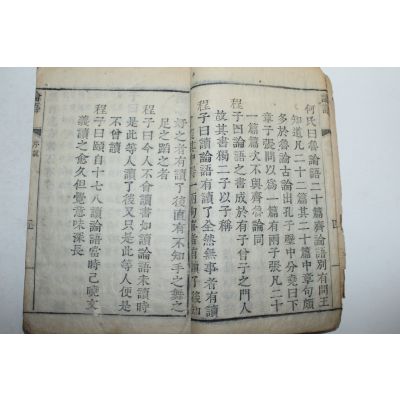 何氏曰魯論語二十篇齊論語別有問王
知道凡二十二篇其二十篇中章句頗
多於魯論古論出孔子壁中分堯曰下
章子張問以為一篇有兩子張凡二十
一篇篇次不與齊魯論同
程子曰論語之書成於有子曾子之門人
故其書獨二子以子稱
程子曰讀論語有讀了全然無事者有讀
了後其中得一兩句喜者有讀了後知
好之者有讀了後直有不知手之舞之
足之蹈之者
程子曰今人不會讀書如讀論語未讀時
是此等人讀了後又只是此等人便是
不曾讀
程子曰頤自十七八讀論語當時已曉文
義讀之愈久但覺意味深長
論語
序說